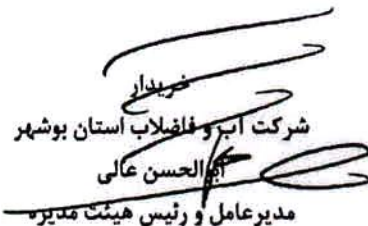 خریدار
شرکت آب و فاضلاب استان بوشهر
ابوالحسن عالی
مدیرعامل و رئیس هیئت مدیره